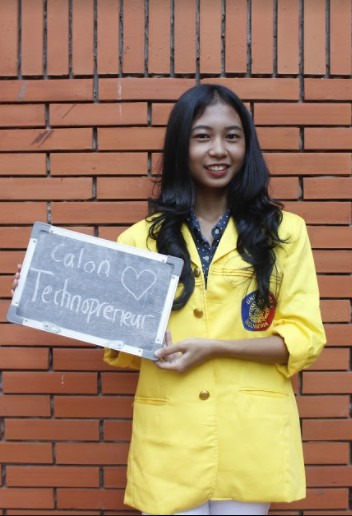 Calon
Technopreneur